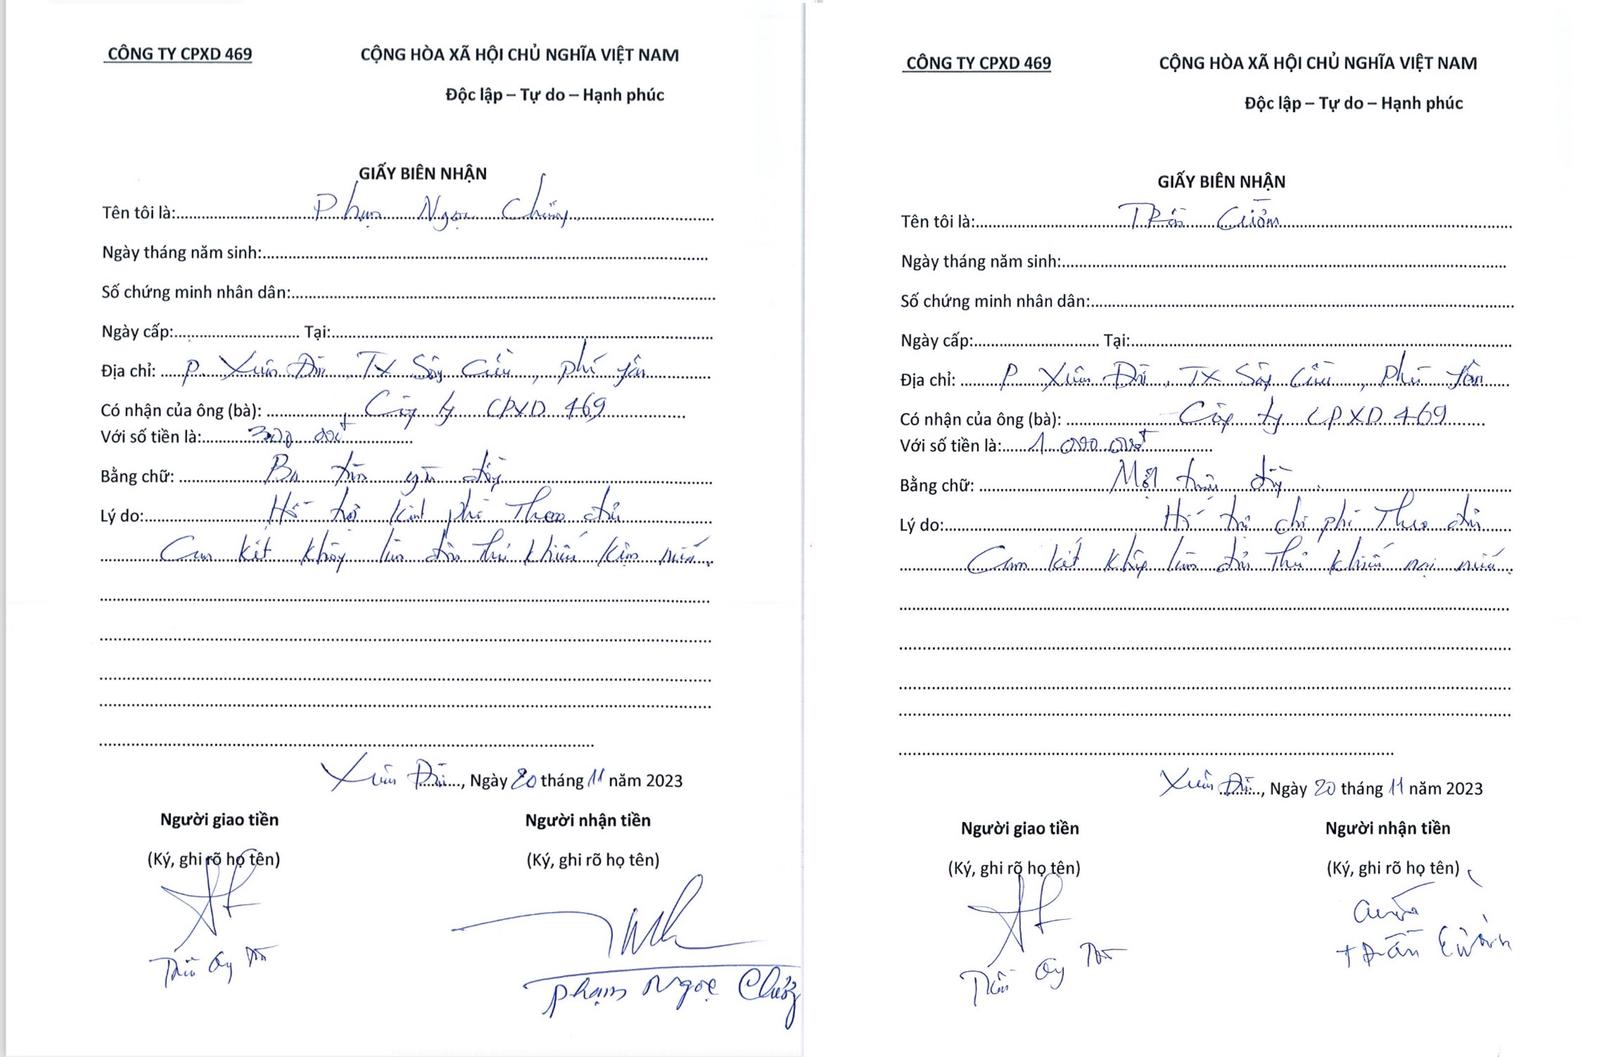 CÔNG TY CPXD 469
CỘNG HÒA XÃ HỘI CHỦ NGHĨA VIỆT NAM
Độc lập – Tự do – Hạnh phúc
GIẤY BIÊN NHẬN
Tên tôi là: Phạm Ngọc
Ngày tháng năm sinh:
Số chứng minh nhân dân:
Ngày cấp: Tại:
Địa chỉ: P Xuân Đài, TX Sông Cầu, Phú Yên
Có nhận của ông (bà): Công ty CPXD 469
Với số tiền là:
Bằng chữ: Ba trăm đồng
Lý do: Hỗ trợ kinh phí Theo
Cam kết không làm đơn thư khiếu
Xuân Đài, Ngày 20 tháng 11 năm 2023
Người giao tiền Người nhận tiền
(Ký, ghi rõ họ tên) (Ký, ghi rõ họ tên)
Phạm Ngọc
CÔNG TY CPXD 469
CỘNG HÒA XÃ HỘI CHỦ NGHĨA VIỆT NAM
Độc lập – Tự do – Hạnh phúc
GIẤY BIÊN NHẬN
Tên tôi là: Trần
Ngày tháng năm sinh:
Số chứng minh nhân dân:
Ngày cấp: Tại:
Địa chỉ: P Xuân Đài, TX Sông Cầu, Phú Yên
Có nhận của ông (bà): Công ty CPXD 469
Với số tiền là: 1.000.000đ
Bằng chữ: Một triệu đồng
Lý do: Hỗ trợ chi phí Theo
Cam kết không làm đơn Thư khiếu nại
Xuân Đài, Ngày 20 tháng 11 năm 2023
Người giao tiền Người nhận tiền
(Ký, ghi rõ họ tên) (Ký, ghi rõ họ tên)
Trần